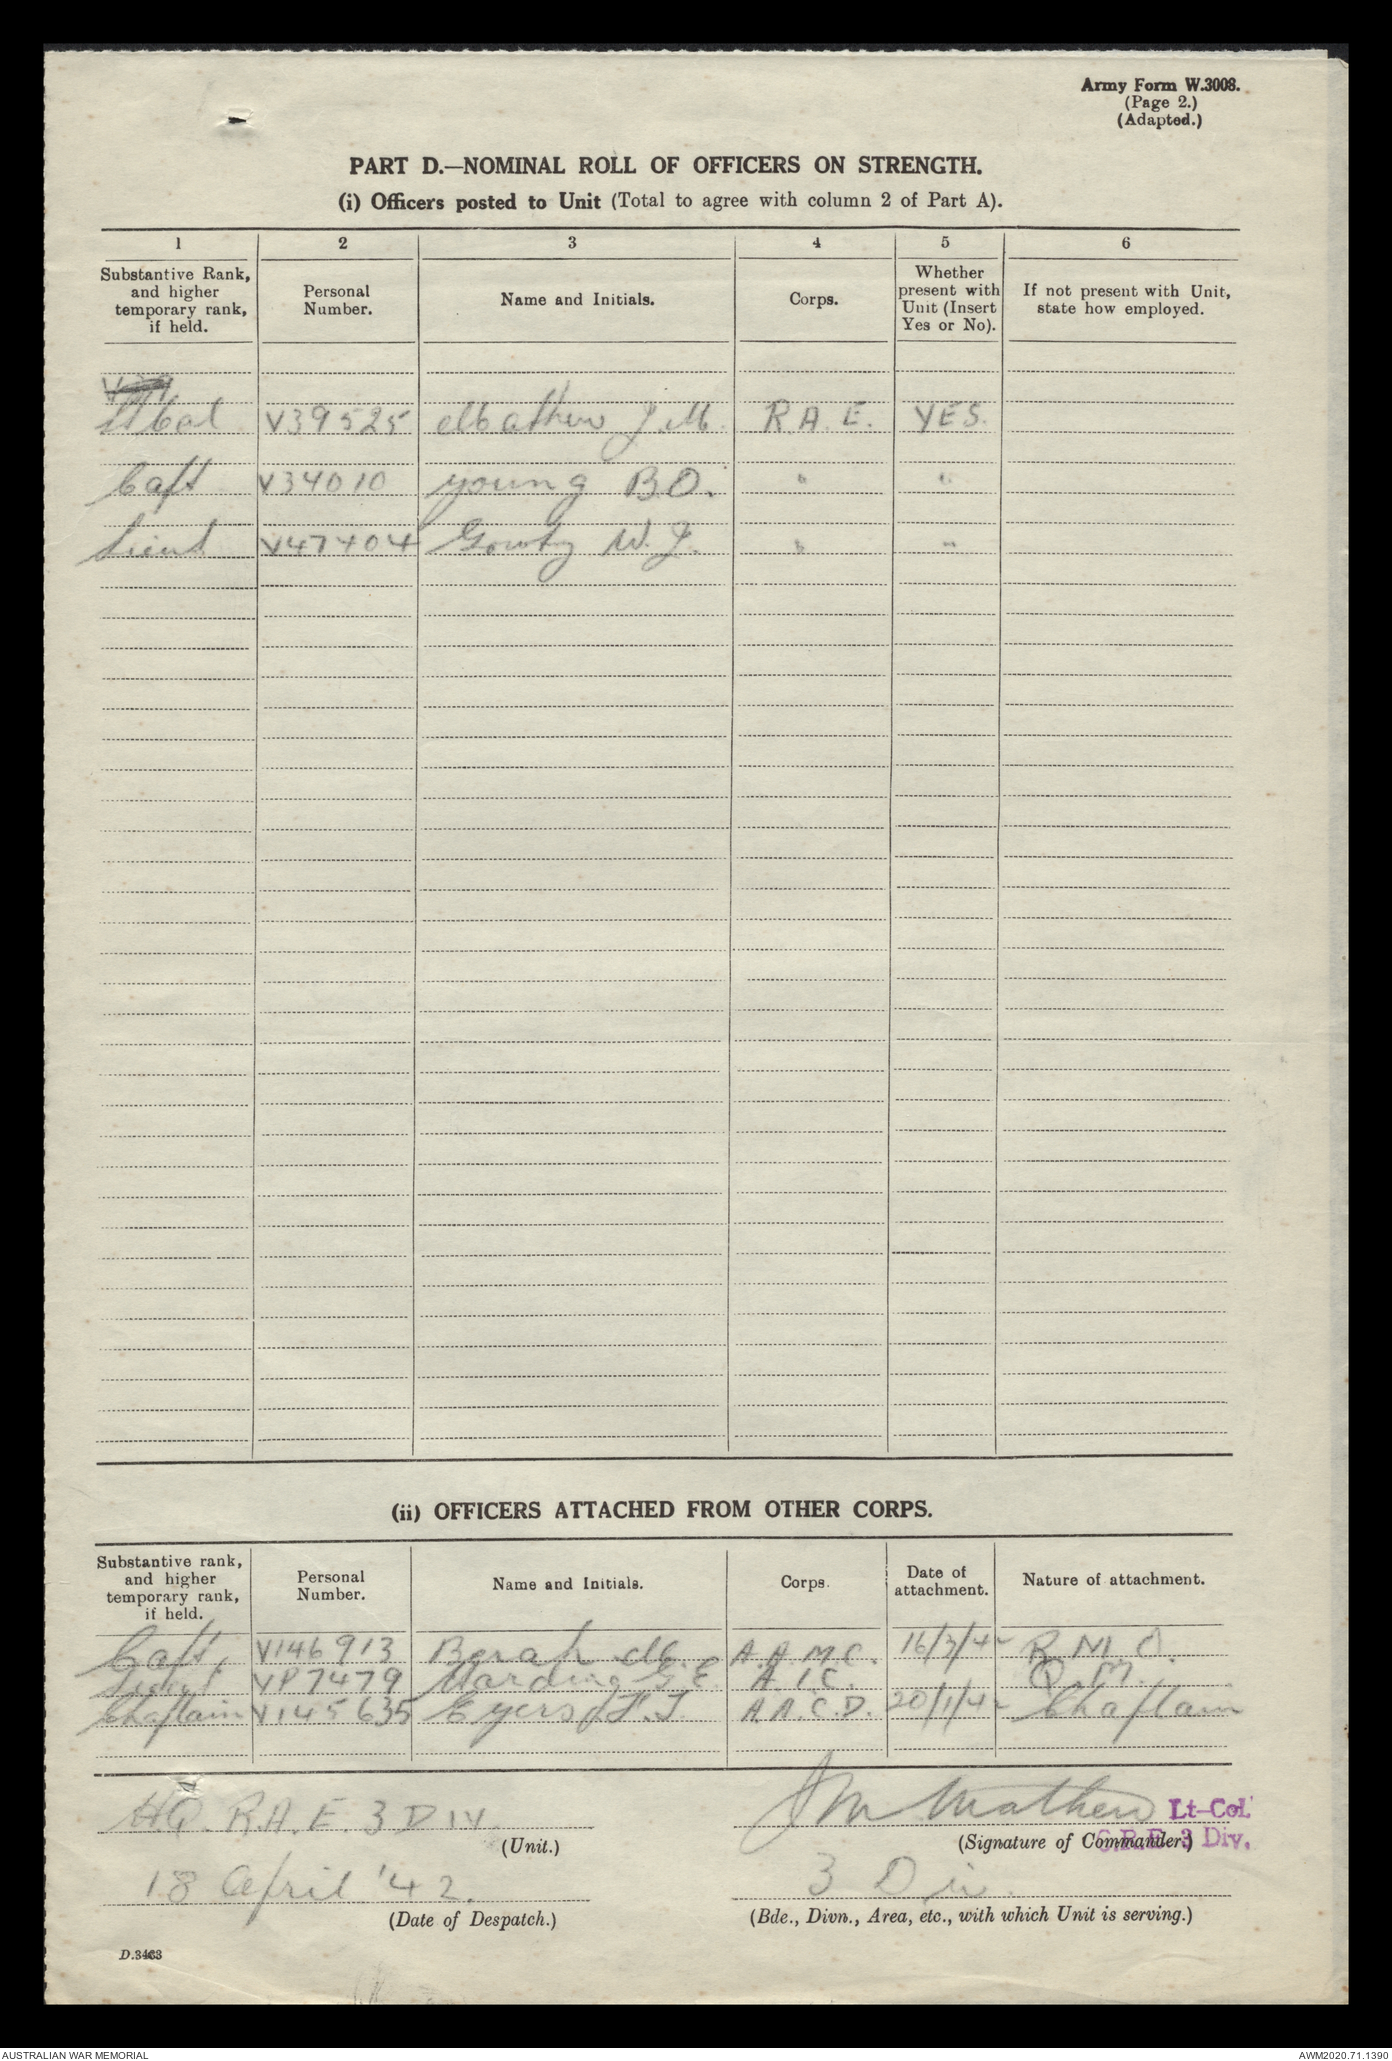 Army Form W.3008.
(Page 2.)
(Adapted.)
PART D.—NOMINAL ROLL OF OFFICERS ON STRENGTH.
(i) Officers posted to Unit (Total to agree with column 2 of Part A).
1 2 3 4 5 6
Substantive Rank, and higher temporary rank, if held. Personal Number. Name and Initials. Corps. Whether present with Unit (Insert Yes or No). If not present with Unit, state how employed.
V39
Lt Col V39525 Mathew J.M. R.A.E. YES.
Capt V34010 young B.O. " "
Lieut V47404 W.J. " "
(ii) OFFICERS ATTACHED FROM OTHER CORPS.
Substantive rank, and higher temporary rank, if held. Personal Number. Name and Initials. Corps. Date of attachment. Nature of attachment.
Capt. V146913 Berah M. A.A.M.C. 16/3/42 R.M.O.
Lieut VP7479 Harding G.E. A.I.C. Q.M.
Chaplain V145635 Eyers F.T. A.A.C.D. 20/1/42 Chaplain
H.Q. R.A.E. 3 DIV.
(Unit.)
J M Mathew Lt-Col.
C.R.E. 3 Div.
(Signature of Commander.)
18 April '42.
(Date of Despatch.)
3 Div.
(Bde., Divn., Area, etc., with which Unit is serving.)
D.3463
AUSTRALIAN WAR MEMORIAL
AWM2020.71.1390